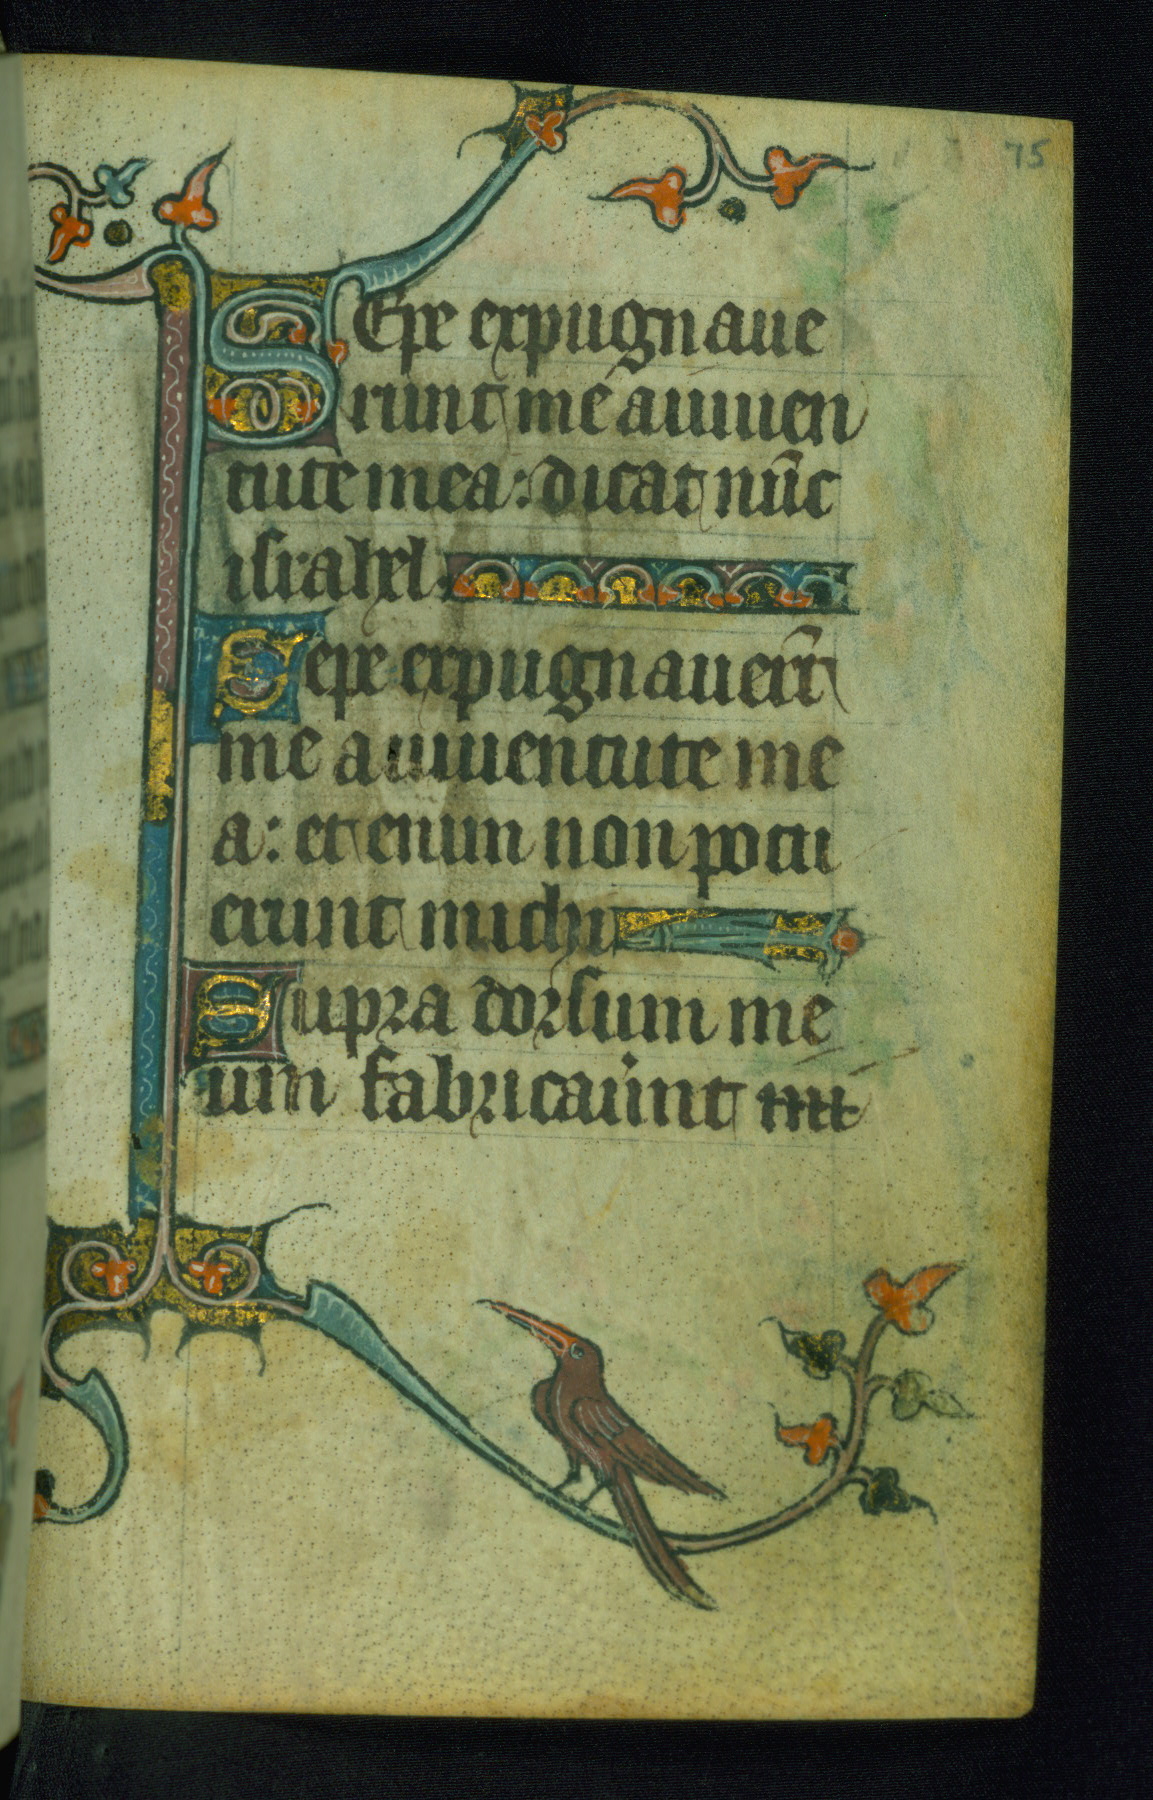 75
SEpe expugnaue
runt me a iuuen
tute mea: dicat nūc
israhel.
Sepe expugnauerūt
me a iuuentute me
a: et enim non potu
erunt michi
Supra dorsum me
um fabricauunt